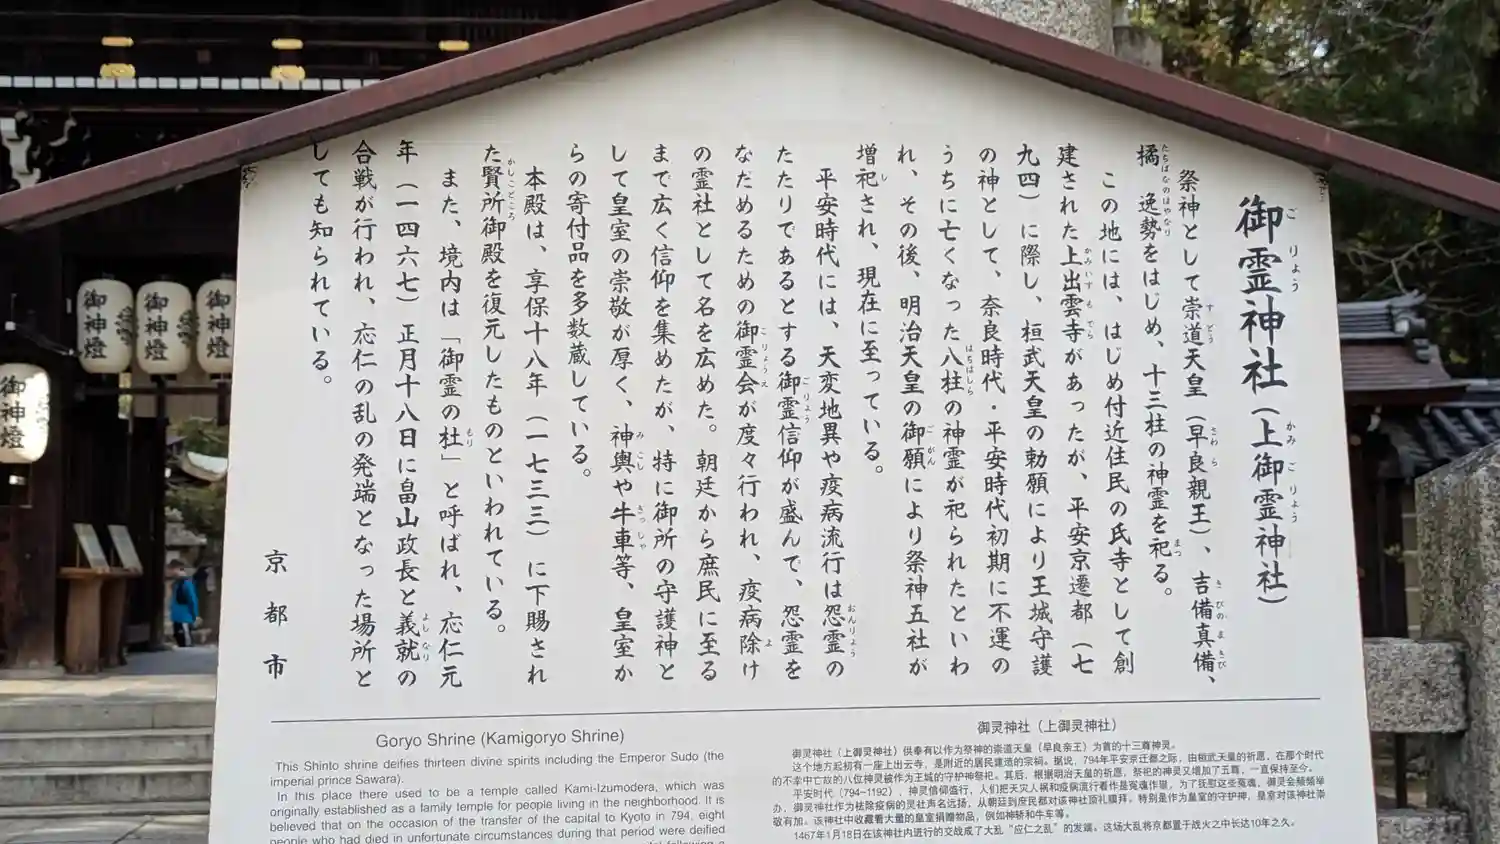 御霊神社（上御霊神社）
祭神として崇道天皇（早良親王）、吉備真備、
橘　逸勢をはじめ、十三柱の神霊を祀る。
この地には、はじめ付近住民の氏寺として創
建された上出雲寺があったが、平安京遷都（七
九四）に際し、桓武天皇の勅願により王城守護
の神として、奈良時代・平安時代初期に不運の
うちに亡くなった八柱の神霊が祀られたといわ
れ、その後、明治天皇の御願により祭神五社が
増祀され、現在に至っている。
平安時代には、天変地異や疫病流行は怨霊の
たたりであるとする御霊信仰が盛んで、怨霊を
なだめるための御霊会が度々行われ、疫病除け
の霊社として名を広めた。朝廷から庶民に至る
まで広く信仰を集めたが、特に御所の守護神と
して皇室の崇敬が厚く、神輿や牛車等、皇室か
らの寄付品を多数蔵している。
本殿は、享保十八年（一七三三）に下賜され
た賢所御殿を復元したものといわれている。
また、境内は「御霊の杜」と呼ばれ、応仁元
年（一四六七）正月十八日に畠山政長と義就の
合戦が行われ、応仁の乱の発端となった場所と
しても知られている。
京都市
Goryo Shrine (Kamigoryo Shrine)
This Shinto shrine deifies thirteen divine spirits including the Emperor Sudo (the
imperial prince Sawara).
In this place there used to be a temple called Kami-Izumodera, which was
originally established as a family temple for people living in the neighborhood. It is
believed that on the occasion of the transfer of the capital to Kyoto in 794, eight
people who had died in unfortunate circumstances during that period were deified
御灵神社（上御灵神社）
御灵神社（上御灵神社）供奉有以作为祭神的崇道天皇（早良亲王）为首的十三尊神灵。
这个地方起初有一座上出云寺，是附近的居民建造的宗祠。据说，794年平安京迁都之际，由桓武天皇的祈愿，在那个时代
的不幸中亡故的八位神灵被作为王城的守护神祭祀。其后，根据明治天皇的祈愿，祭祀的神灵又增加了五尊，一直保持至今。
平安时代（794-1192），神灵信仰盛行，人们把天灾人祸和疫病流行看作是冤魂作祟，为了抚慰这些冤魂，御灵会频频举
办，御灵神社作为祛除疫病的灵社声名远扬，从朝廷到庶民都对该神社顶礼膜拜，特别是作为皇室的守护神，皇室对该神社崇
敬有加。该神社中收藏着大量的皇室捐赠物品，例如神轿和牛车等。
1467年1月18日在该神社内进行的交战成了大乱“应仁之乱”的发端。这场大乱将京都置于战火之中长达10年之久。
御神燈
御神燈
御神燈
御神燈